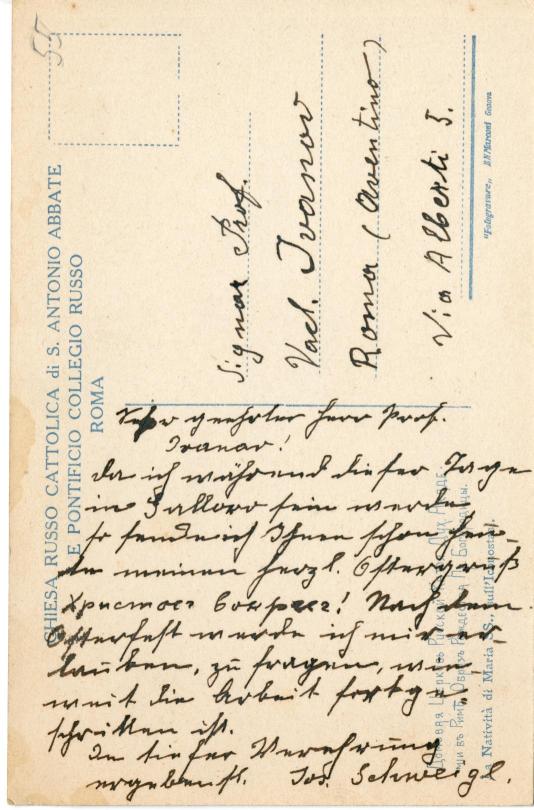 55
CHIESA RUSSO CATTOLICA di S. ANTONIO ABBATE
E PONTIFICIO COLLEGIO RUSSO
ROMA
Signor Prof.
Vacl. Ivanov
Roma (Aventino)
Via Alberti 5.
"Fotogravure„
Genova
Sehr geehrter Herr Prof.
Ivanov!
Da ich während dieser Tage
in Galloro sein werde,
so sende ich Ihnen schon heu-
te meinen herzl. Ostergruß
Христосъ воскресе! Nach dem
Osterfest werde ich mir er-
lauben, zu fragen, wie
weit die Arbeit fortge-
schritten ist.
In tiefer Verehrung
ergebenst. Jos. Schweigl.
Домовая Церковь Русской
въ Римѣ. Образъ Рождества П. Богородицы.
La Natività di Maria SS.